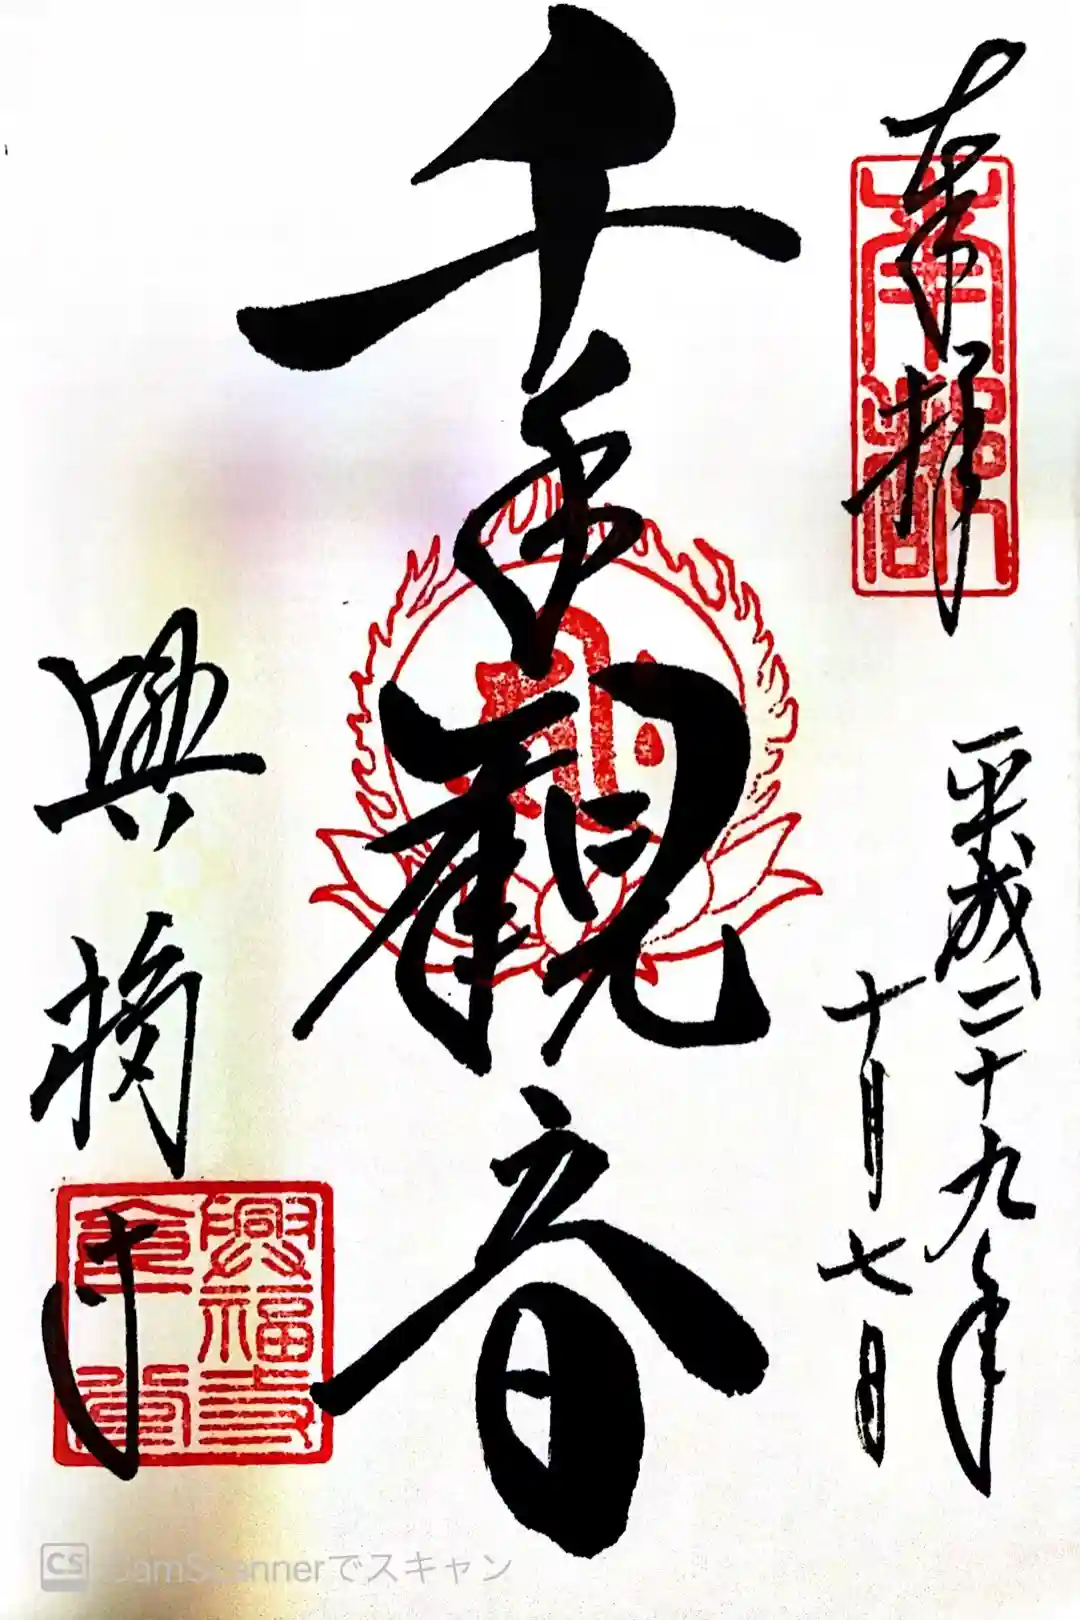 奉拝
南都
平成二十九年
十月七日
千手観音
興福寺
興福寺
金堂
CamScannerでスキャン